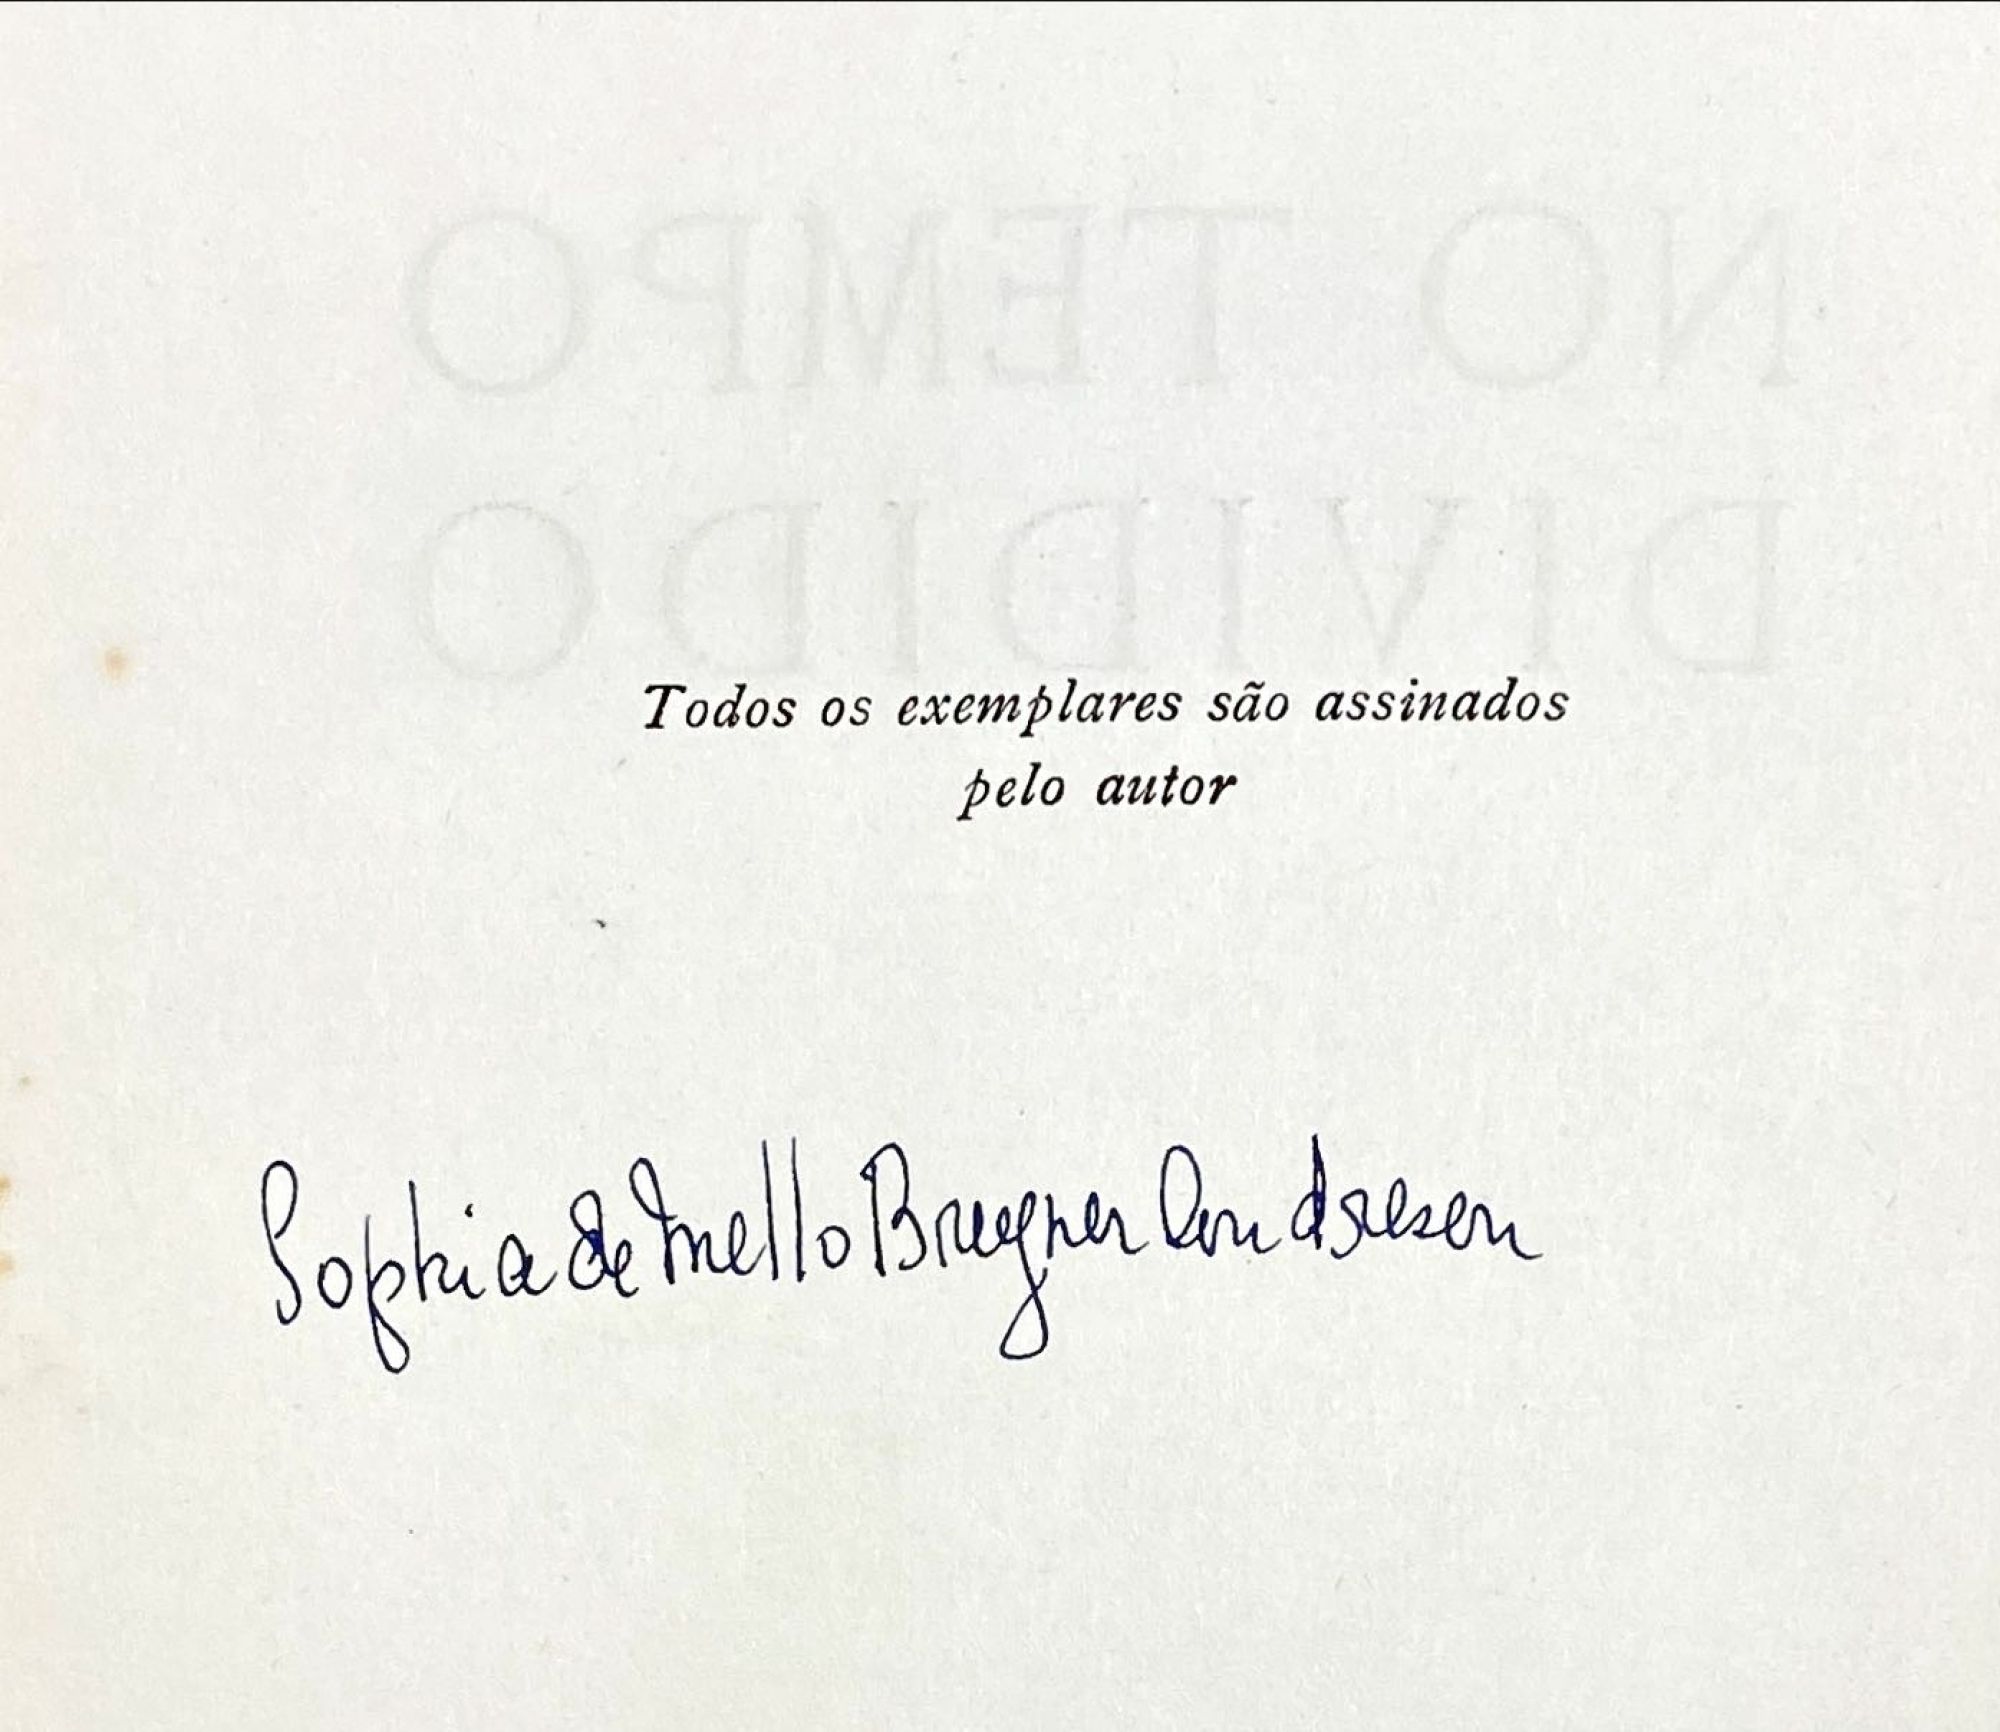 NO TEMPO
DIVIDIDO
Todos os exemplares são assinados
pelo autor
Sophia de Mello Breyner Andresen